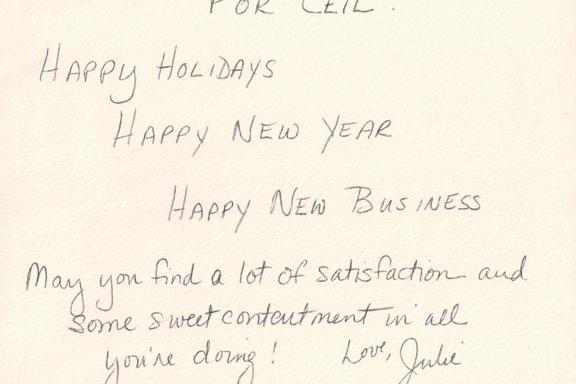 FOR CEIL.
HAPPY HOLIDAYS
HAPPY NEW YEAR
HAPPY NEW BUSINESS
May you find a lot of satisfaction and
some sweet contentment in all
you're doing! Love, Julie